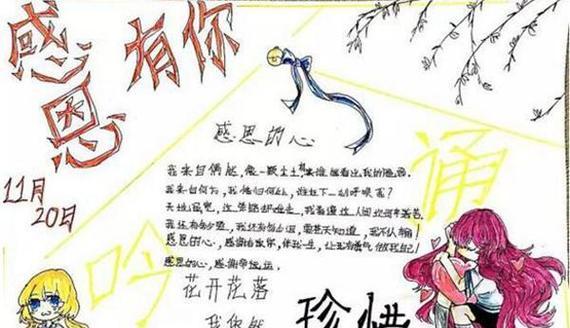 感恩
有你
11月
20日
感恩的心
我来自偶然,像一颗尘土,有谁能看出我的脆弱
我来自何方,我情归何处,谁在下一刻呼唤我?
天地虽宽,这条路却难走,我看遍这人间坎坷辛苦
我还有多少爱,我还有多少泪,要苍天知道,我不认输!
感恩的心,感谢有你,伴我一生,让我有勇气做我自己!
感恩的心,感谢命运,
花开花落
我依然
珍惜
吟
诵